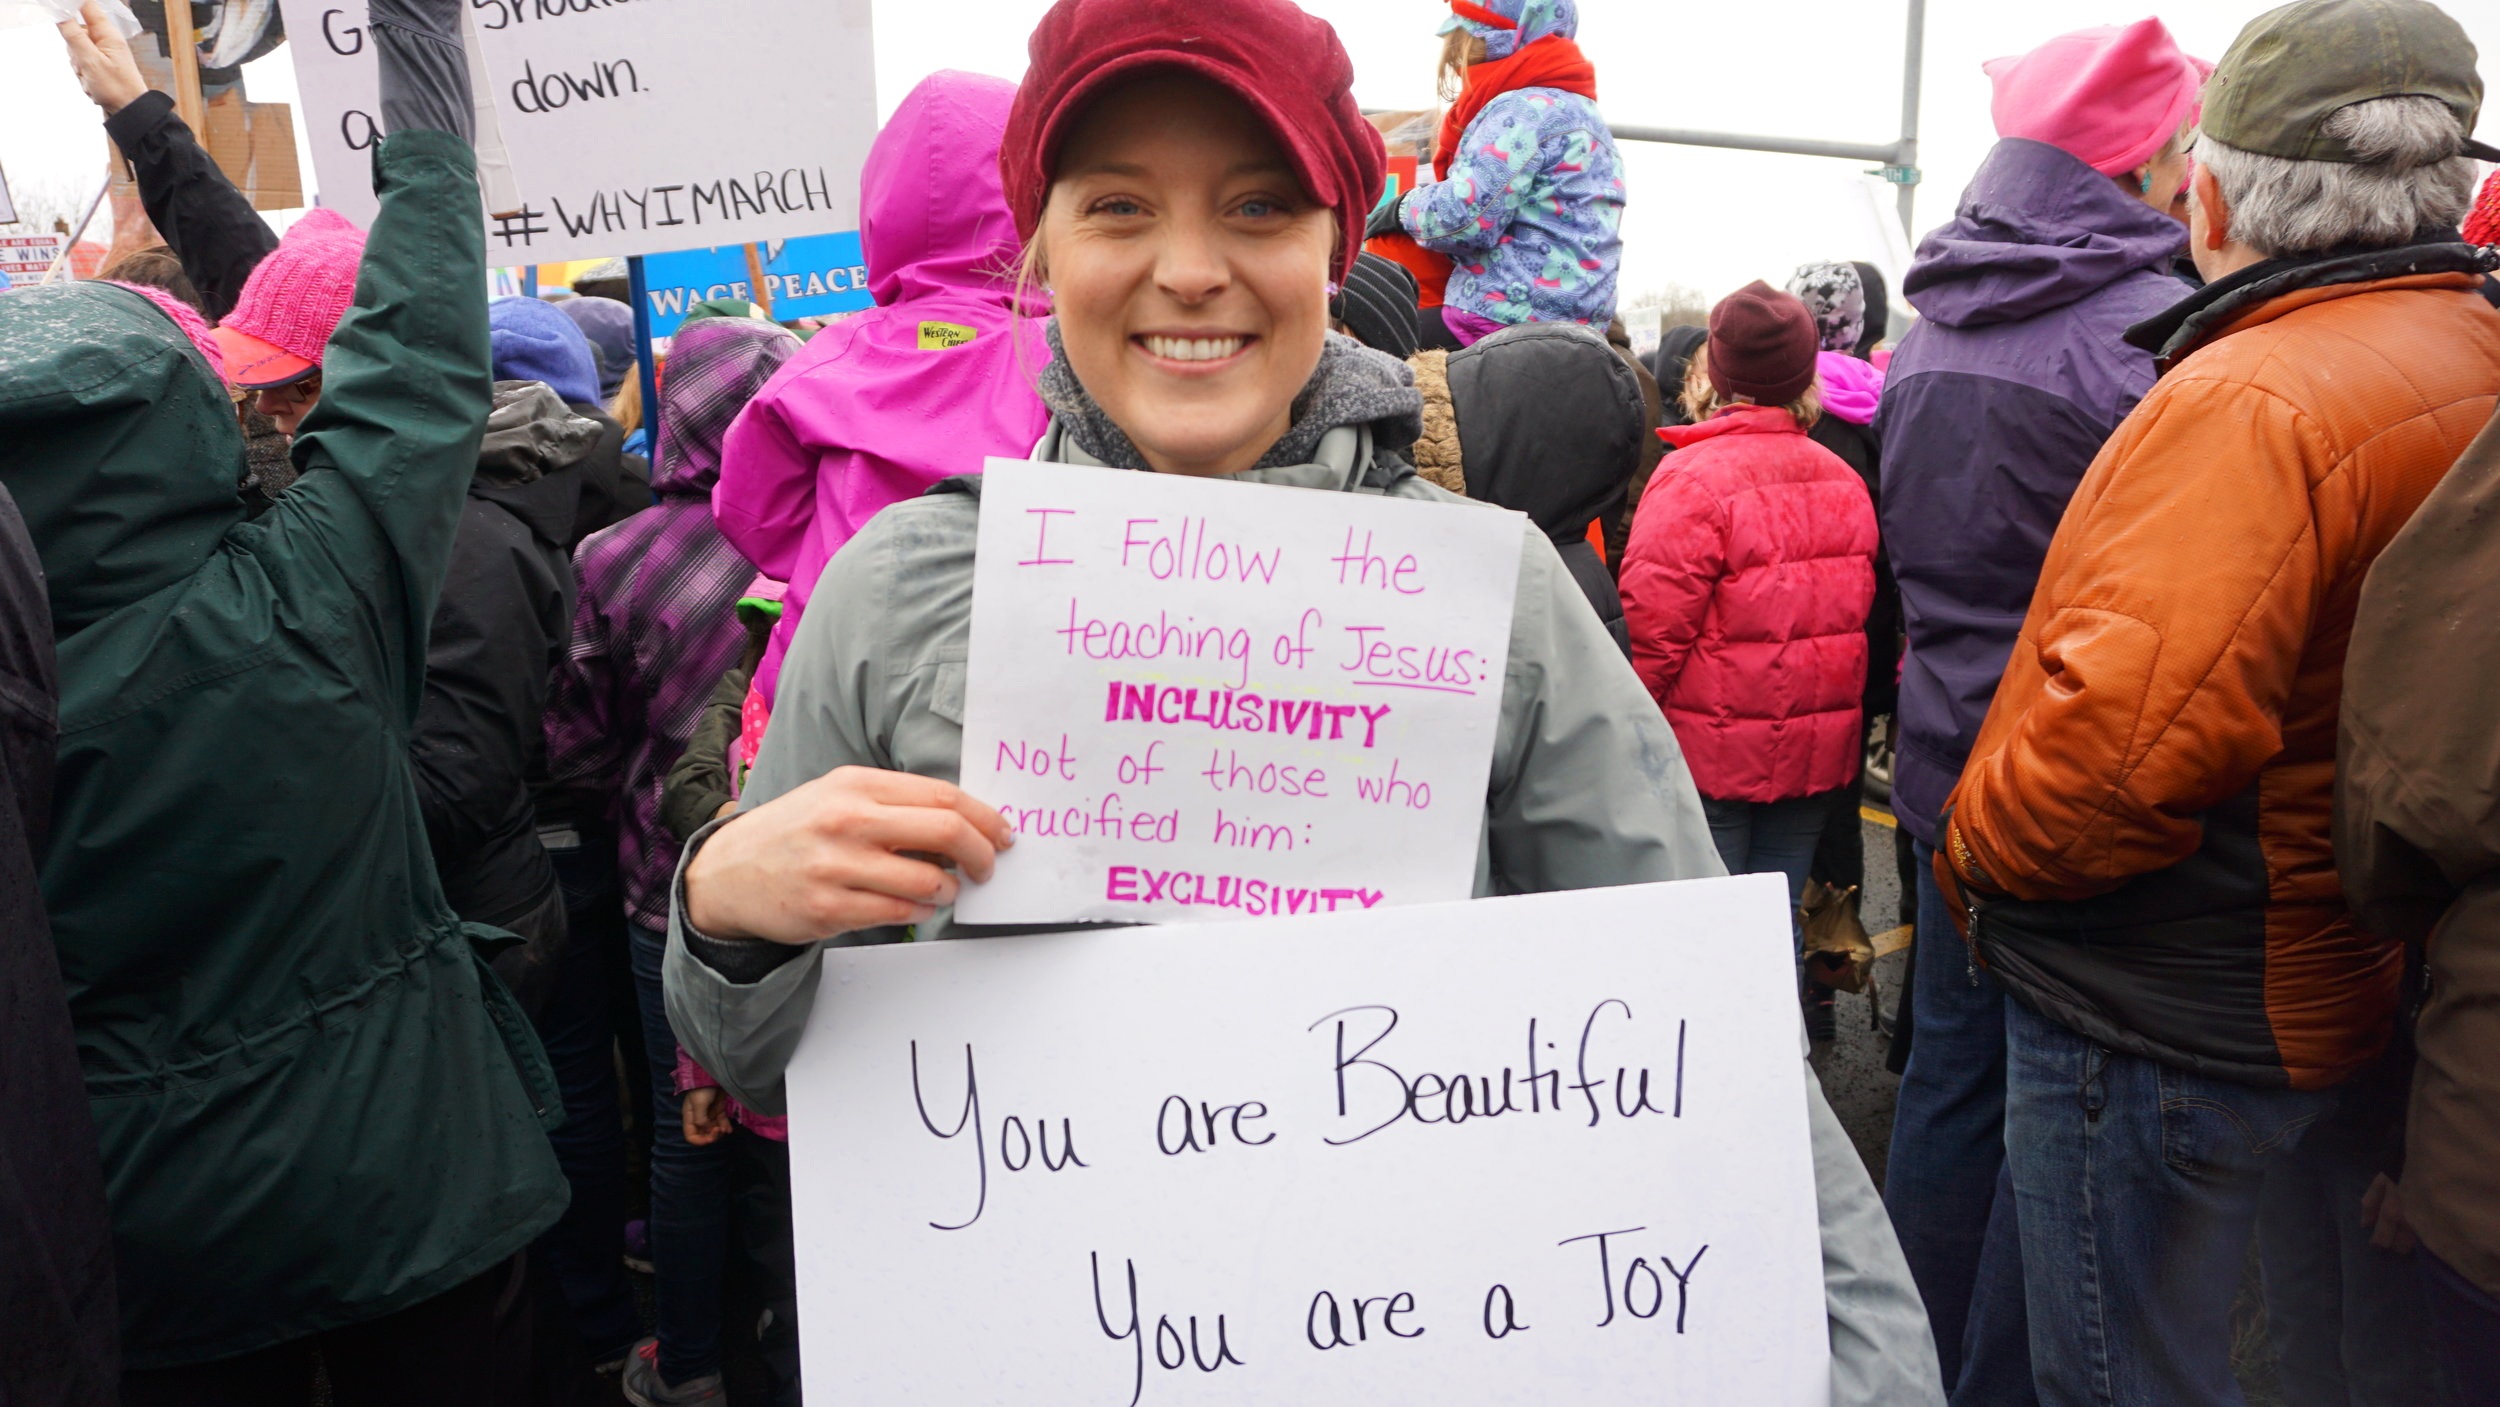 down.
#WHYIMARCH
WAGE PEACE
WESTERN
CHIEF
E WINS
I Follow the
teaching of Jesus:
INCLUSIVITY
Not of those who
crucified him:
EXCLUSIVITY
You are Beautiful
You are a Joy